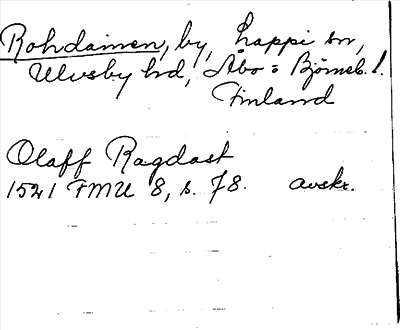 Rohdainen, by, Lappi sn,
Ulvsby hd, Åbo = Björneb. l.
Finland
Olaff Ragdast
1541 FMU 8, s. 78. avskr.